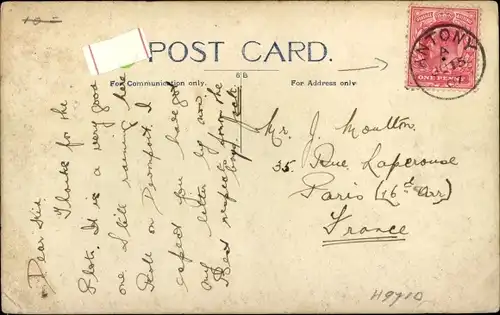 POST CARD.
For Communication only.
For Address only.
ANTONY
A
15
ONE PENNY
Dear Sid.
Thanks for the
Plate. It is a very good
one. Still raining here
on Devonport. I
expect you have got
my letter by now
Best respects from the
boys.
Mr J. Moulton.
35. Rue Laperouse
Paris (16è Ar)
France
H9410